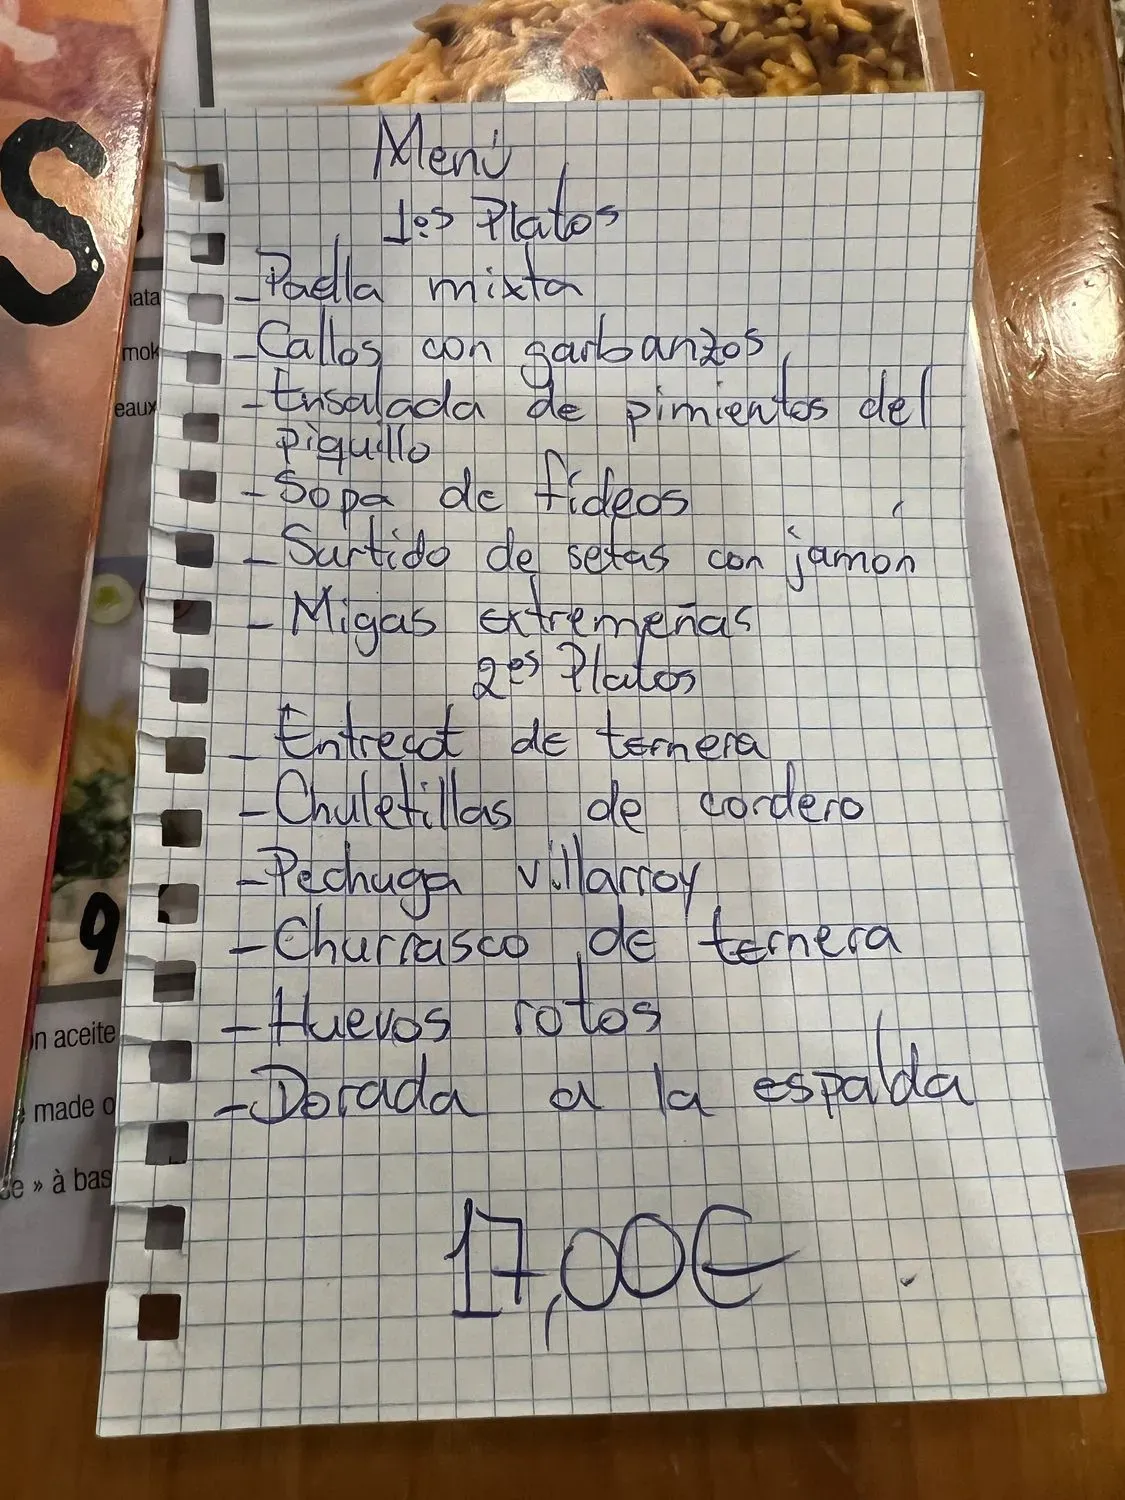 S
iata
mok
eaux
9
n aceite
made o
se » à bas
Menú
1os Platos
- Paella mixta
- Callos con garbanzos
- Ensalada de pimientos del
piquillo
- Sopa de fideos
- Surtido de setas con jamón
- Migas extremeñas
2os Platos
- Entrecot de ternera
- Chuletillas de cordero
- Pechuga villarroy
- Churrasco de ternera
- Huevos rotos
- Dorada a la espalda
17,00€